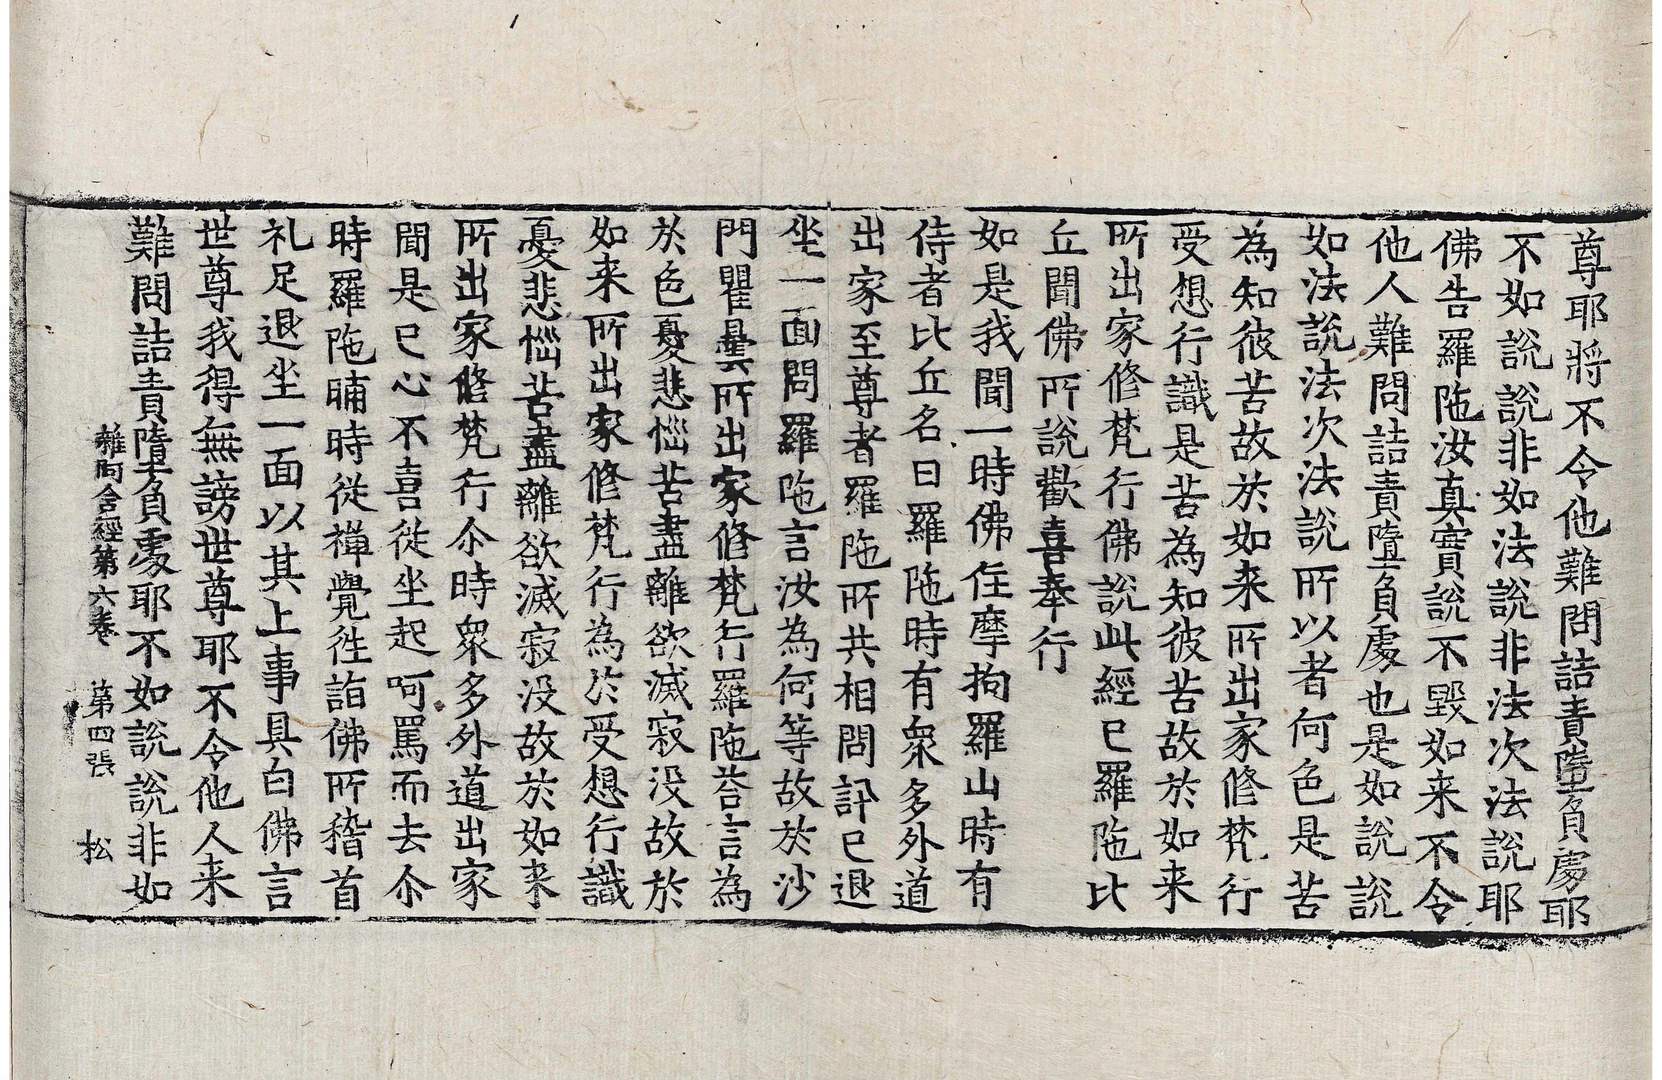 尊耶將不令他難問詰責墮負處耶
不如說說非如法說非法次法說耶
佛告羅陁汝真實說不毀如来不令
他人難問詰責墮負處也是如說說
如法說法次法說所以者何色是苦
為知彼苦故於如来所出家修梵行
受想行識是苦為知彼苦故於如来
所出家修梵行佛說此經已羅陁比
丘聞佛所說歡喜奉行
如是我聞一時佛住摩拘羅山時有
侍者比丘名曰羅陁時有衆多外道
出家至尊者羅陁所共相問訊已退
坐一面問羅陁言汝為何等故於沙
門瞿曇所出家修梵行羅陁荅言為
於色憂悲惱苦盡離欲滅寂没故於
如来所出家修梵行為於受想行識
憂悲惱苦盡離欲滅寂没故於如来
所出家修梵行尒時衆多外道出家
聞是已心不喜從坐起呵罵而去尒
時羅陁晡時從禅覺徃詣佛所稽首
礼足退坐一面以其上事具白佛言
世尊我得無謗世尊耶不令他人来
難問詰責墮負處耶不如說說非如
雜阿含經第六卷 第四張 松